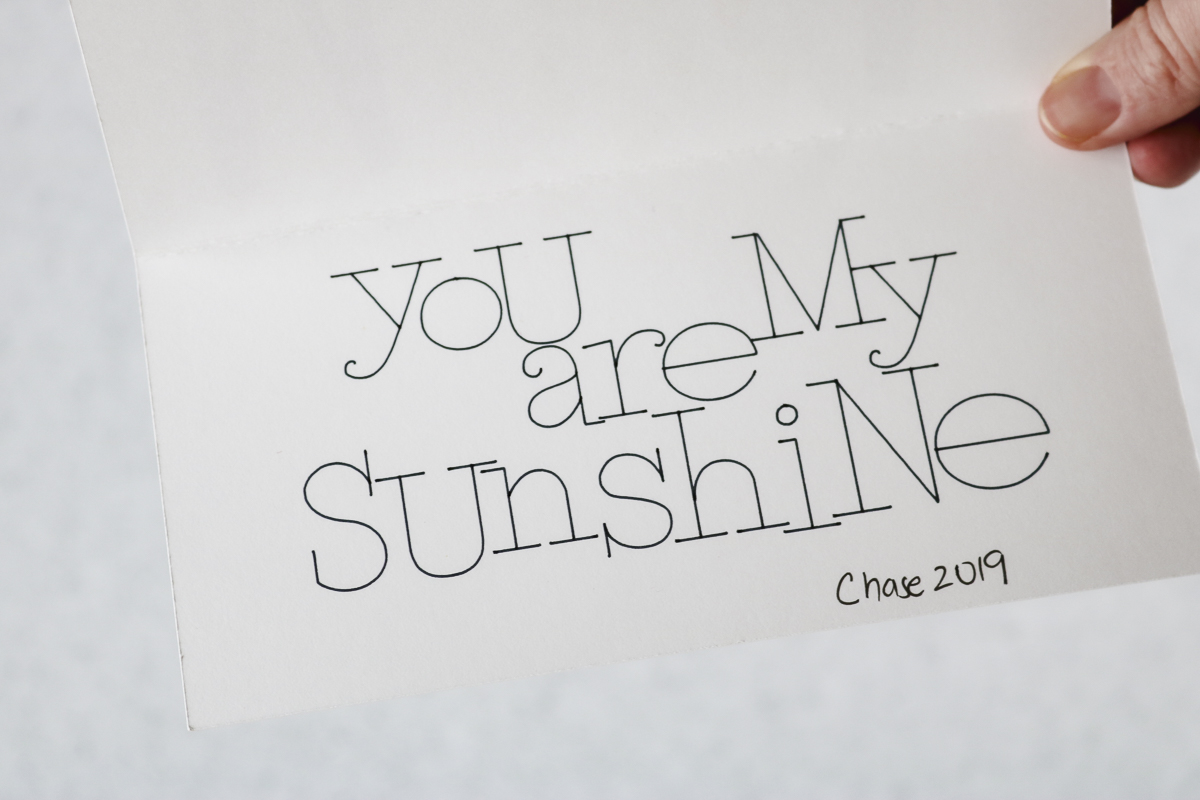 yoU are My
SUnshiNe
Chase 2019